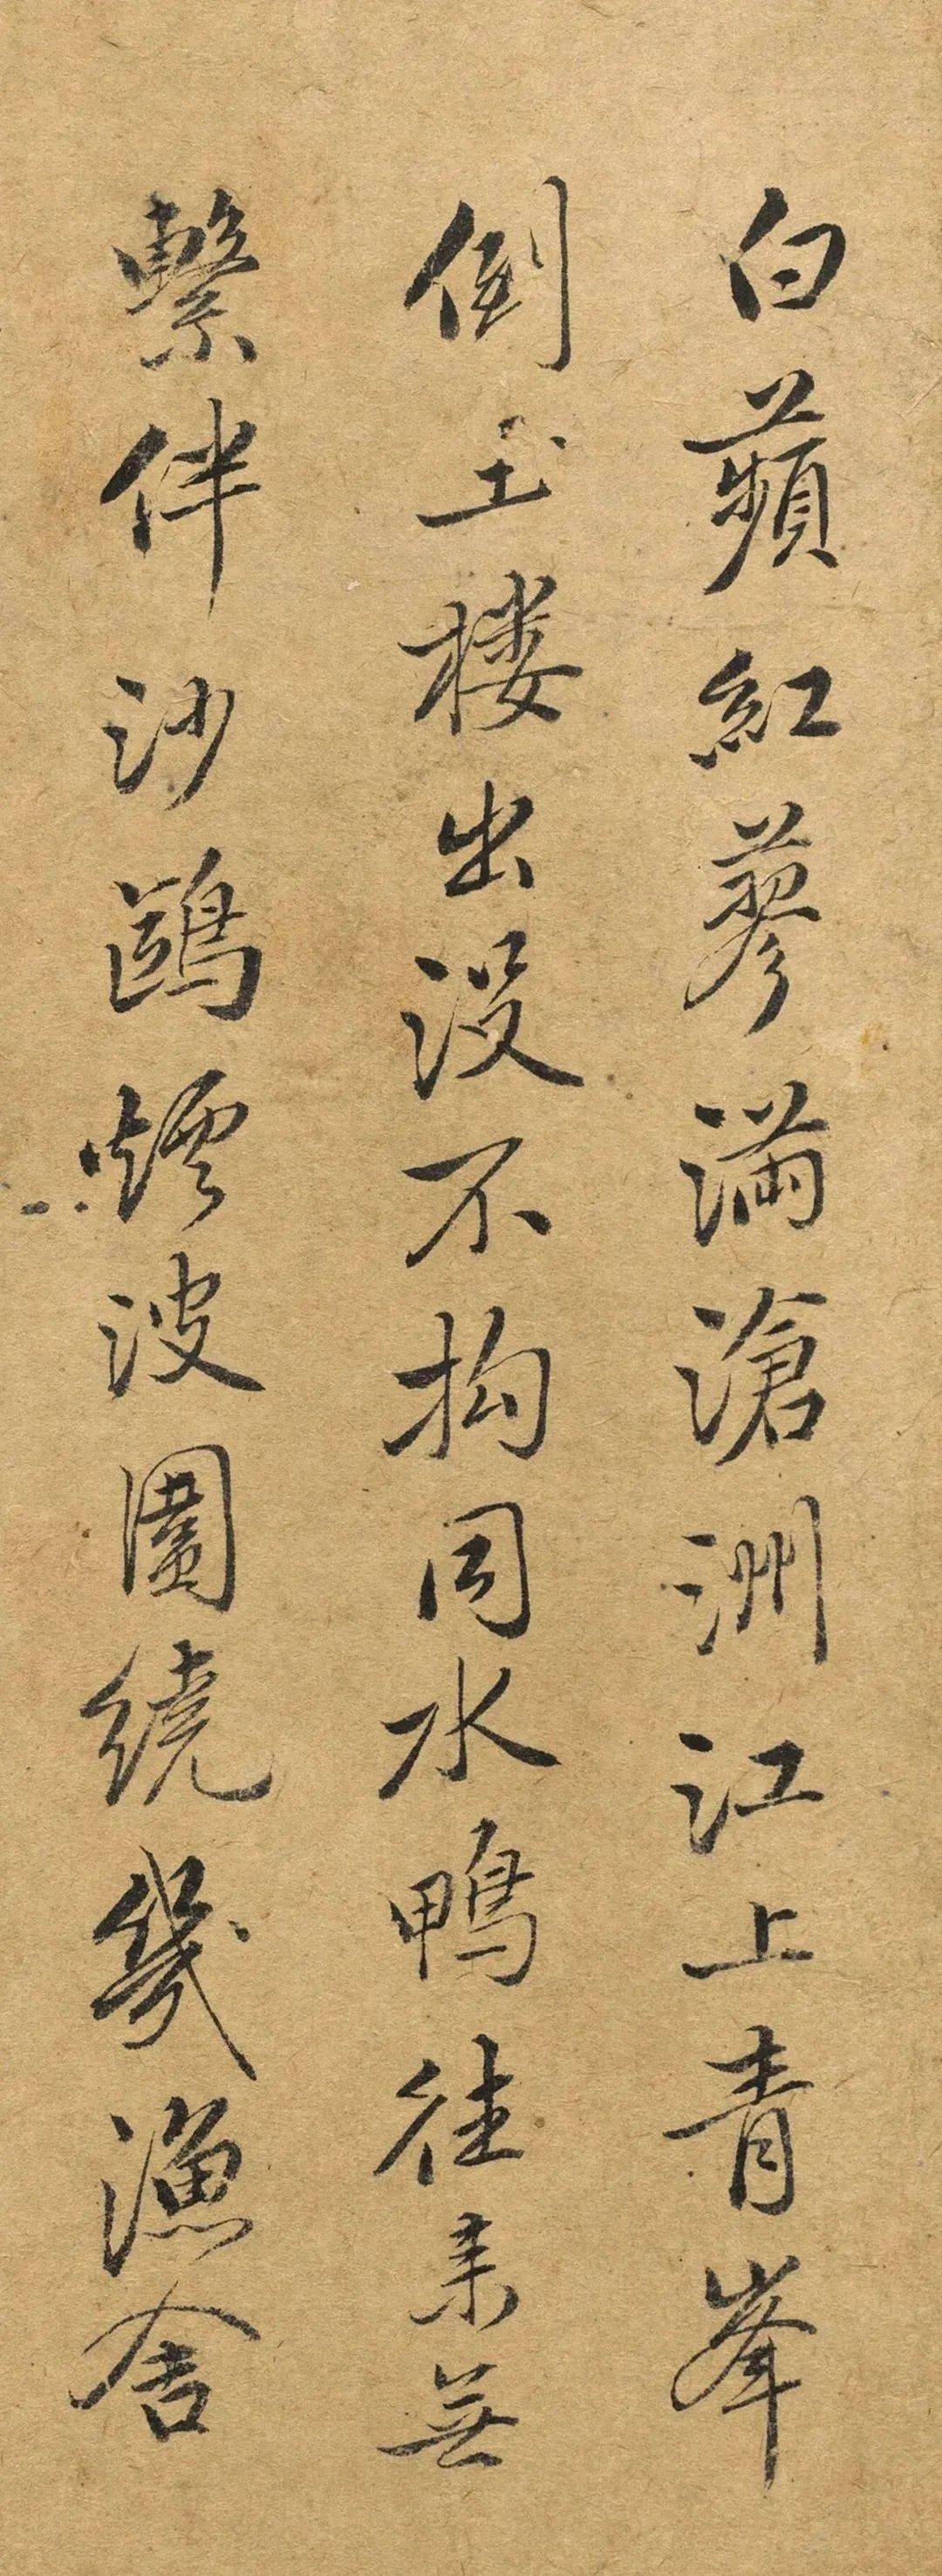 白蘋紅蓼滿滄洲江上青峯
倒玉楼出沒不拘同水鴨往来無
繫伴沙鷗煙波圍繞幾漁舍